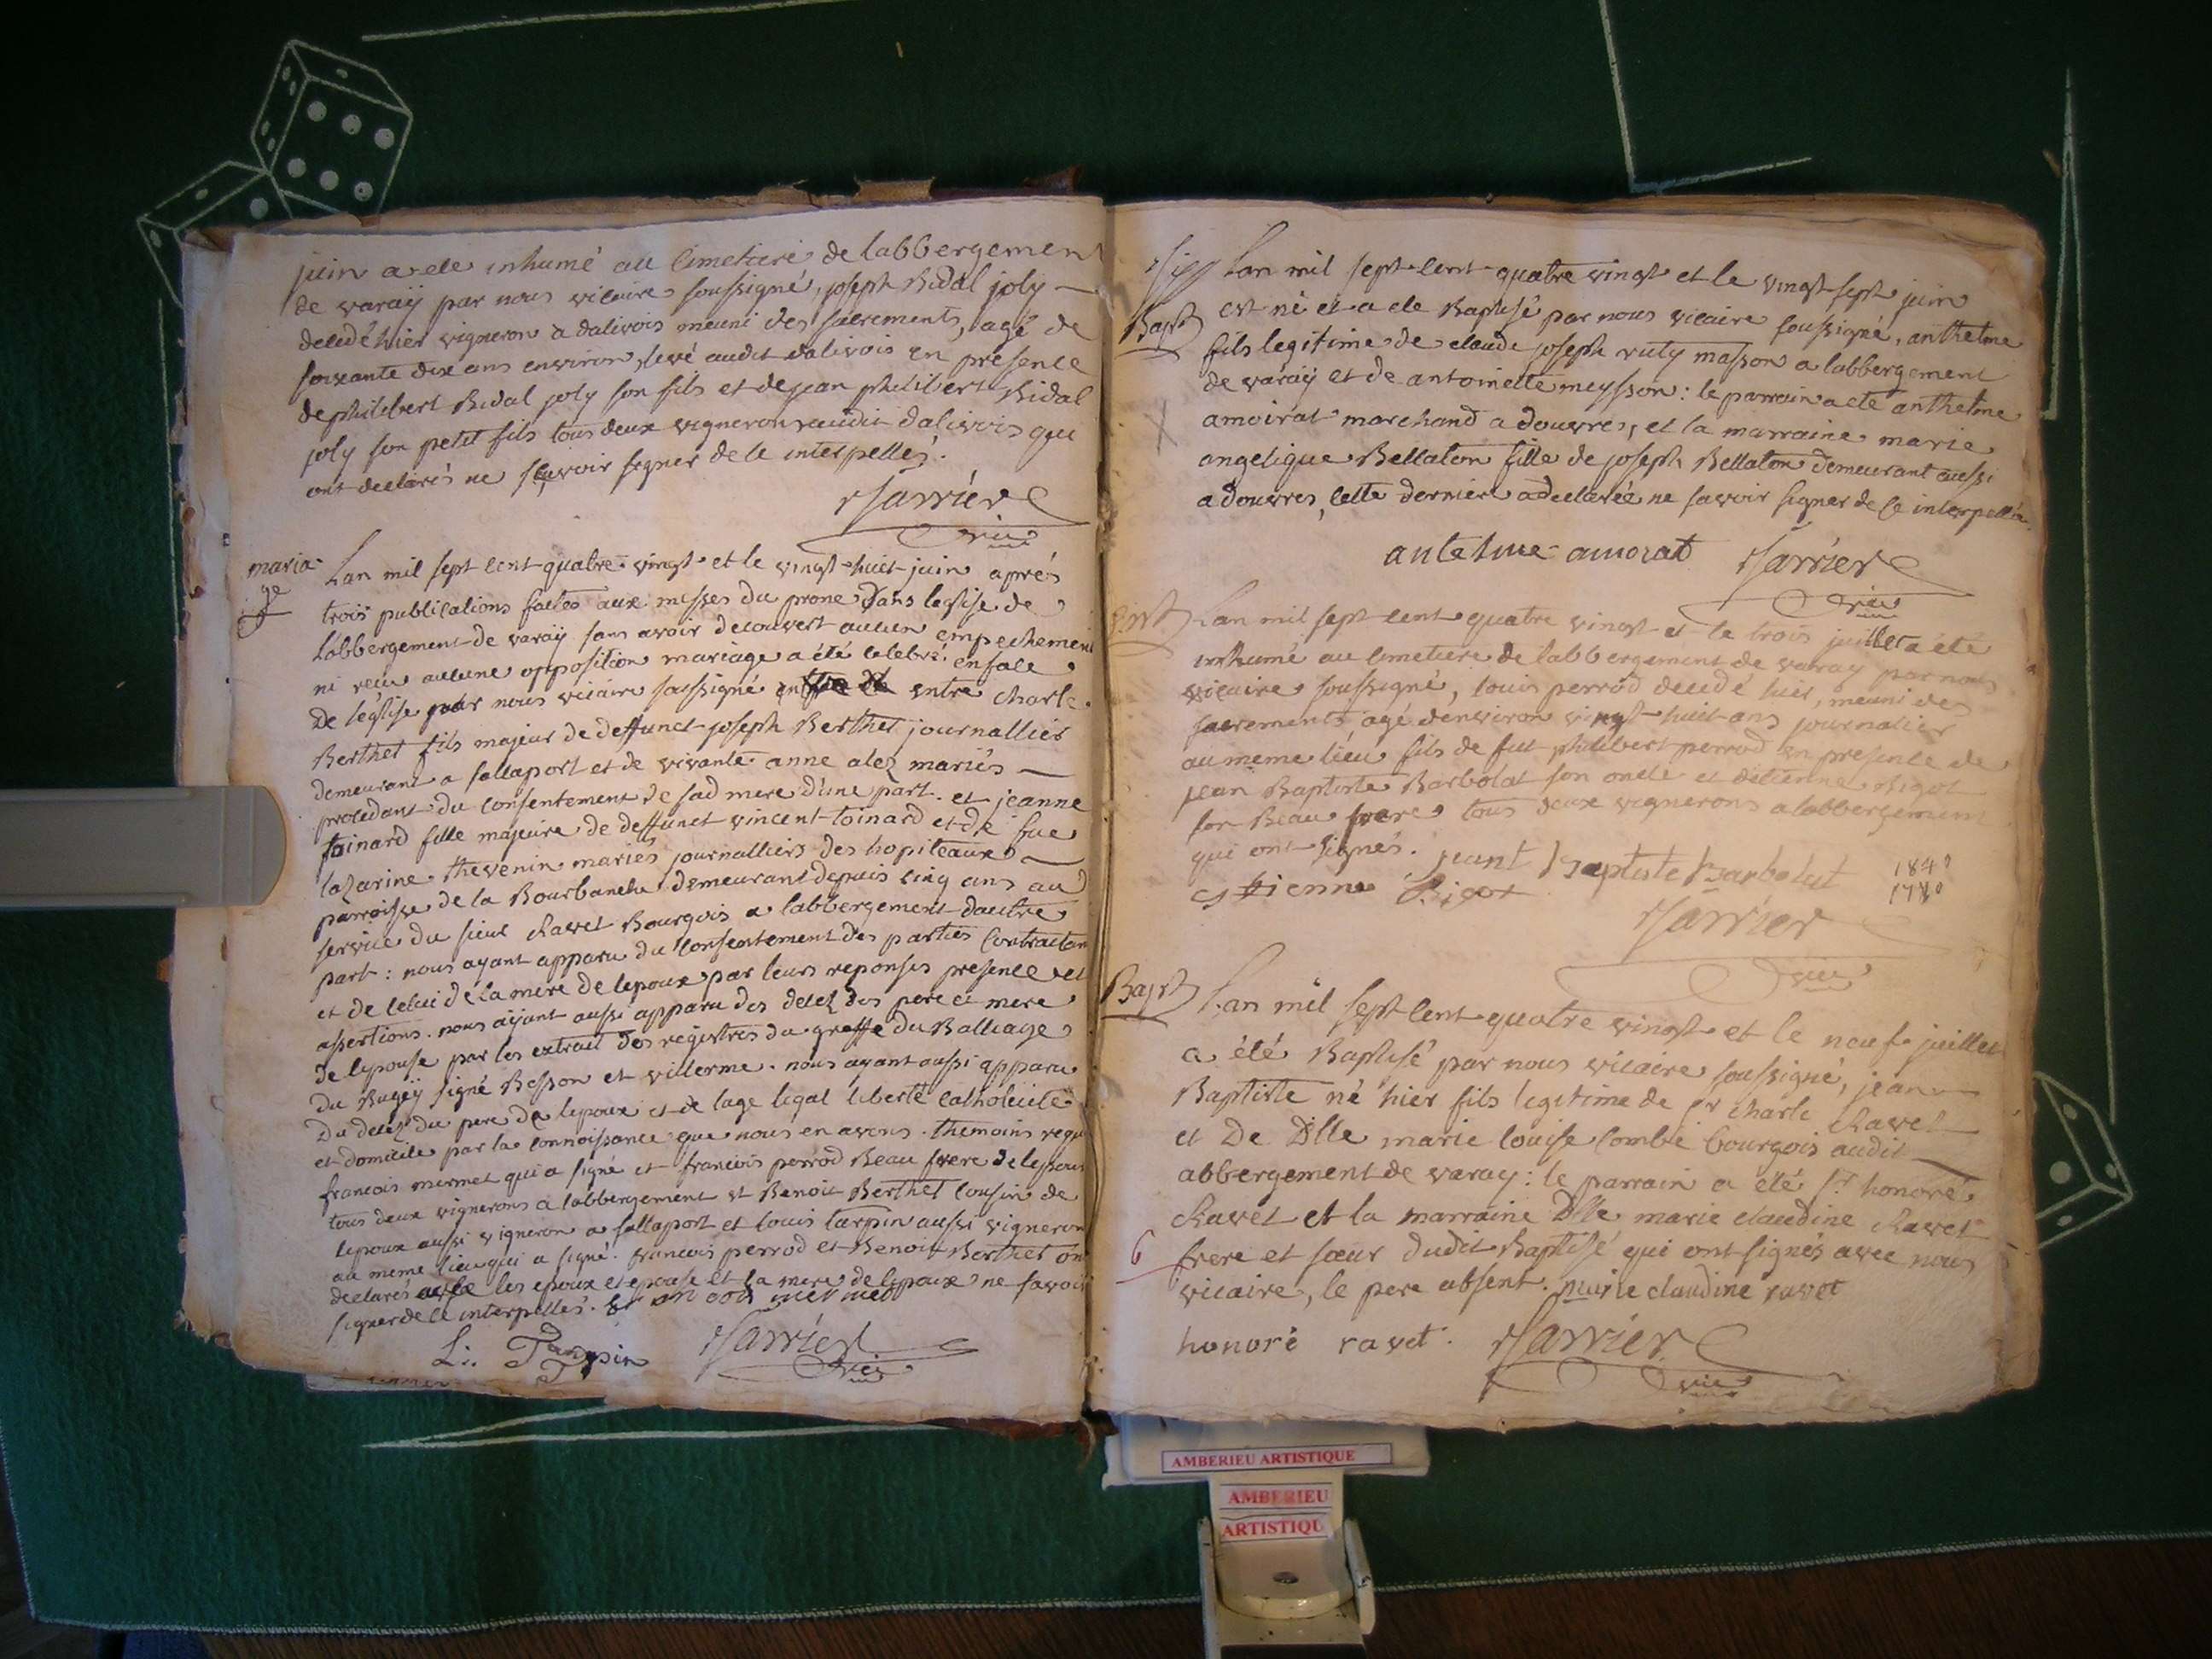 juin a ete inhumé au cimetiere de labbergemen
de varaÿ par nous vicaire soussigné, joseph Bidal joly
decedé hier vigneron a dalivois meuni des sacrements, agé de
soixante dix ans environ, levé audit dalivois en presence
de philibert Bidal joly son fils et de jean philibert Bidal
joly son petit fils tous deux vignerons audit dalivois qui
ont declarés ne sçavoir signer de ce interpellés.
vic
maria
ge
Lan mil sept cent quatre vingt et le vingt huit juin aprés
trois publications faites aux messes du prone dans leglise de
labbergement de varaÿ sans avoir decouvert aucun empechement
ni recu aucune opposition mariage a été celebré en face
De léglise par nous vicaire soussigné entre charle
Berthet fils majeur de deffunct joseph Berthet journallier
demeurant a sallaport et de vivante anne alez mariés
procedant du consentement de sad mere d'une part. et jeanne
toinard fille majeure de deffunct vincent toinard et de fue
lazarine thevenin mariés journalliers des hopiteaux
parroisse de la Bourbanche demeurant depuis cinq ans au
service du sieur Ravet Bourgois a labbergement dautre
part : nous ayant apparu du consentement des parties contractan
et de celui de la mere de lepoux par leurs reponses presence et
assertions. nous aÿant aussi apparu des decez des pere et mere
de lepouse par les extrait des registres du greffe du Balliage
du Bugeÿ signé Besson et villerme. nous ayant aussi apparu
Du decez du pere de lepoux et de lage legal liberté catholicité
et domicile par la connoissance que nous en avons. themoins requ
francois mermet qui a signé et francois perrod Beau frere de lepoux
tous deux vignerons a labbergement et Benoit Berthet cousin de
lepoux aussi vigneron a sallaport et louis tarpin aussi vigneron
au meme lieu qui a signé. francois perrod et Benoit Berthet on
declarés les epoux et epouse et la mere de lepoux ne savoir
signer de ce interpellés. mermet
L. Tarpin
vic
Bapt
Lan mil sept cent quatre vingt et le vingt sept juin
est né et a ete Baptisé par nous vicaire soussigné, anthelme
fils legitime de claude joseph ruty masson a labbergement
de varaÿ et de antoinette meysson : le parrain a eté anthelme
amoirat marchand a douvres, et la marraine marie
angelique Bellaton fille de joseph Bellaton demeurant aussi
a douvres, cette derniere a declarée ne savoir signer de ce interpellé
antelme amorat
vic
Lan mil sept cent quatre vingt et le trois juillet a été
inhumé au cimetiere de labbergement de varay par nous
vicaire soussigné, louis perrod decedé hier, meuni des
sacrements agé d'environ vingt huit ans journalier
au meme lieu fils de feu philibert perrod en presence de
jean Baptiste Barbolat son oncle et d'etienne Rigot
son Beau frere tous deux vignerons a labbergement
qui ont signés. jeant Baptiste barbolat
estienne Rigot
1840
1780
vic
Bapt
Lan mil sept cent quatre vingt et le neuf juillet
a été Baptisé par nous vicaire soussigné, jean
Baptiste né hier fils legitime de sr charle Ravet
et De Dlle marie louise combe bourgois audit
abbergement de varay : le parrain a été sr honoré
Ravet et la marraine Dlle marie claudine Ravet
6
frere et sœur dudit Baptisé qui ont signés avec nous
vicaire, le pere absent. marie claudine ravet
honoré ravet.
vic
AMBERIEU ARTISTIQUE
AMBERIEU
ARTISTIQU